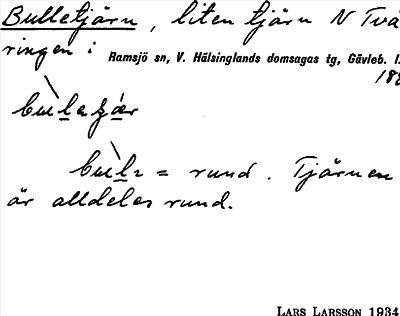 Bulletjärn, liten tjärn N Två
ringen i Ramsjö sn, V. Hälsinglands domsagas tg, Gävleb. l.
188
= rund. Tjärnen
är alldeles rund.
LARS LARSSON 1934